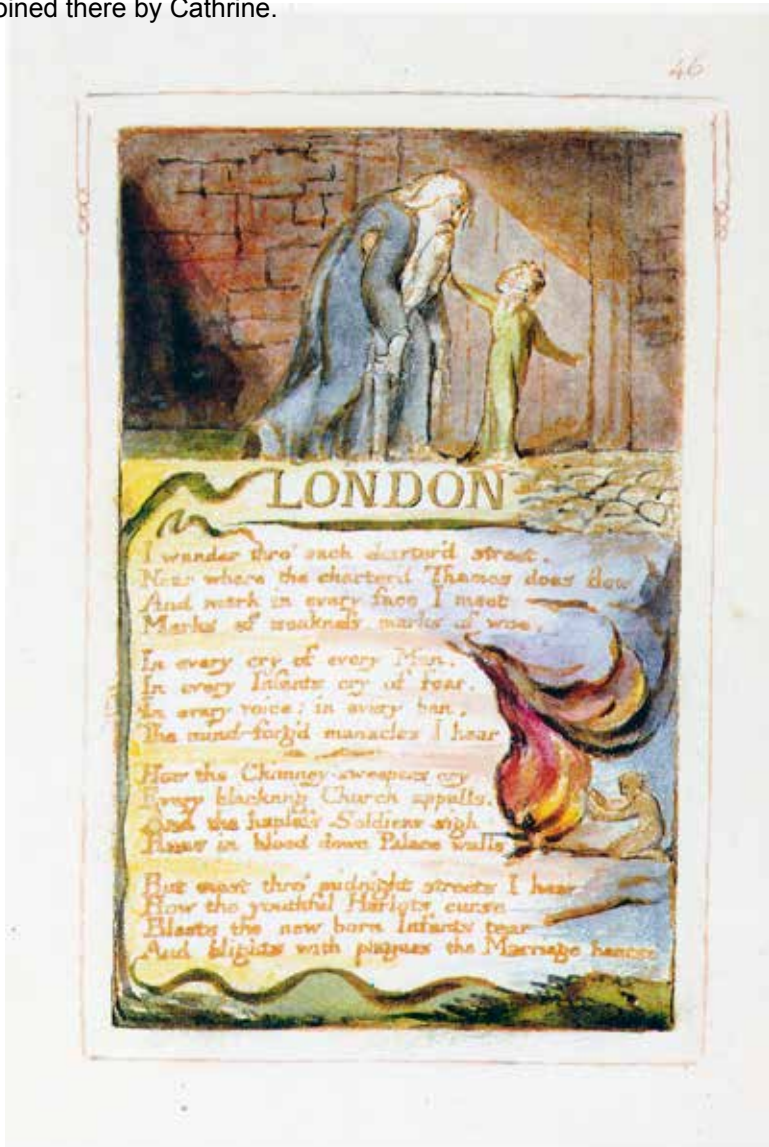 oined there by Cathrine.
46
LONDON
I wander thro' each charter'd street.
Near where the charterd Thames does flow
And mark in every face I meet
Marks of weakness marks of woe.
In every cry of every Man.
In every Infants cry of fear.
In every voice; in every ban.
The mind-forg'd manacles I hear
How the Chimney-sweepers cry
Every blackning Church appalls,
And the hapless Soldiers sigh
Runs in blood down Palace walls
But most thro' midnight streets I hear
How the youthful Harlots curse
Blasts the new born Infants tear
And blights with plagues the Marriage hearse